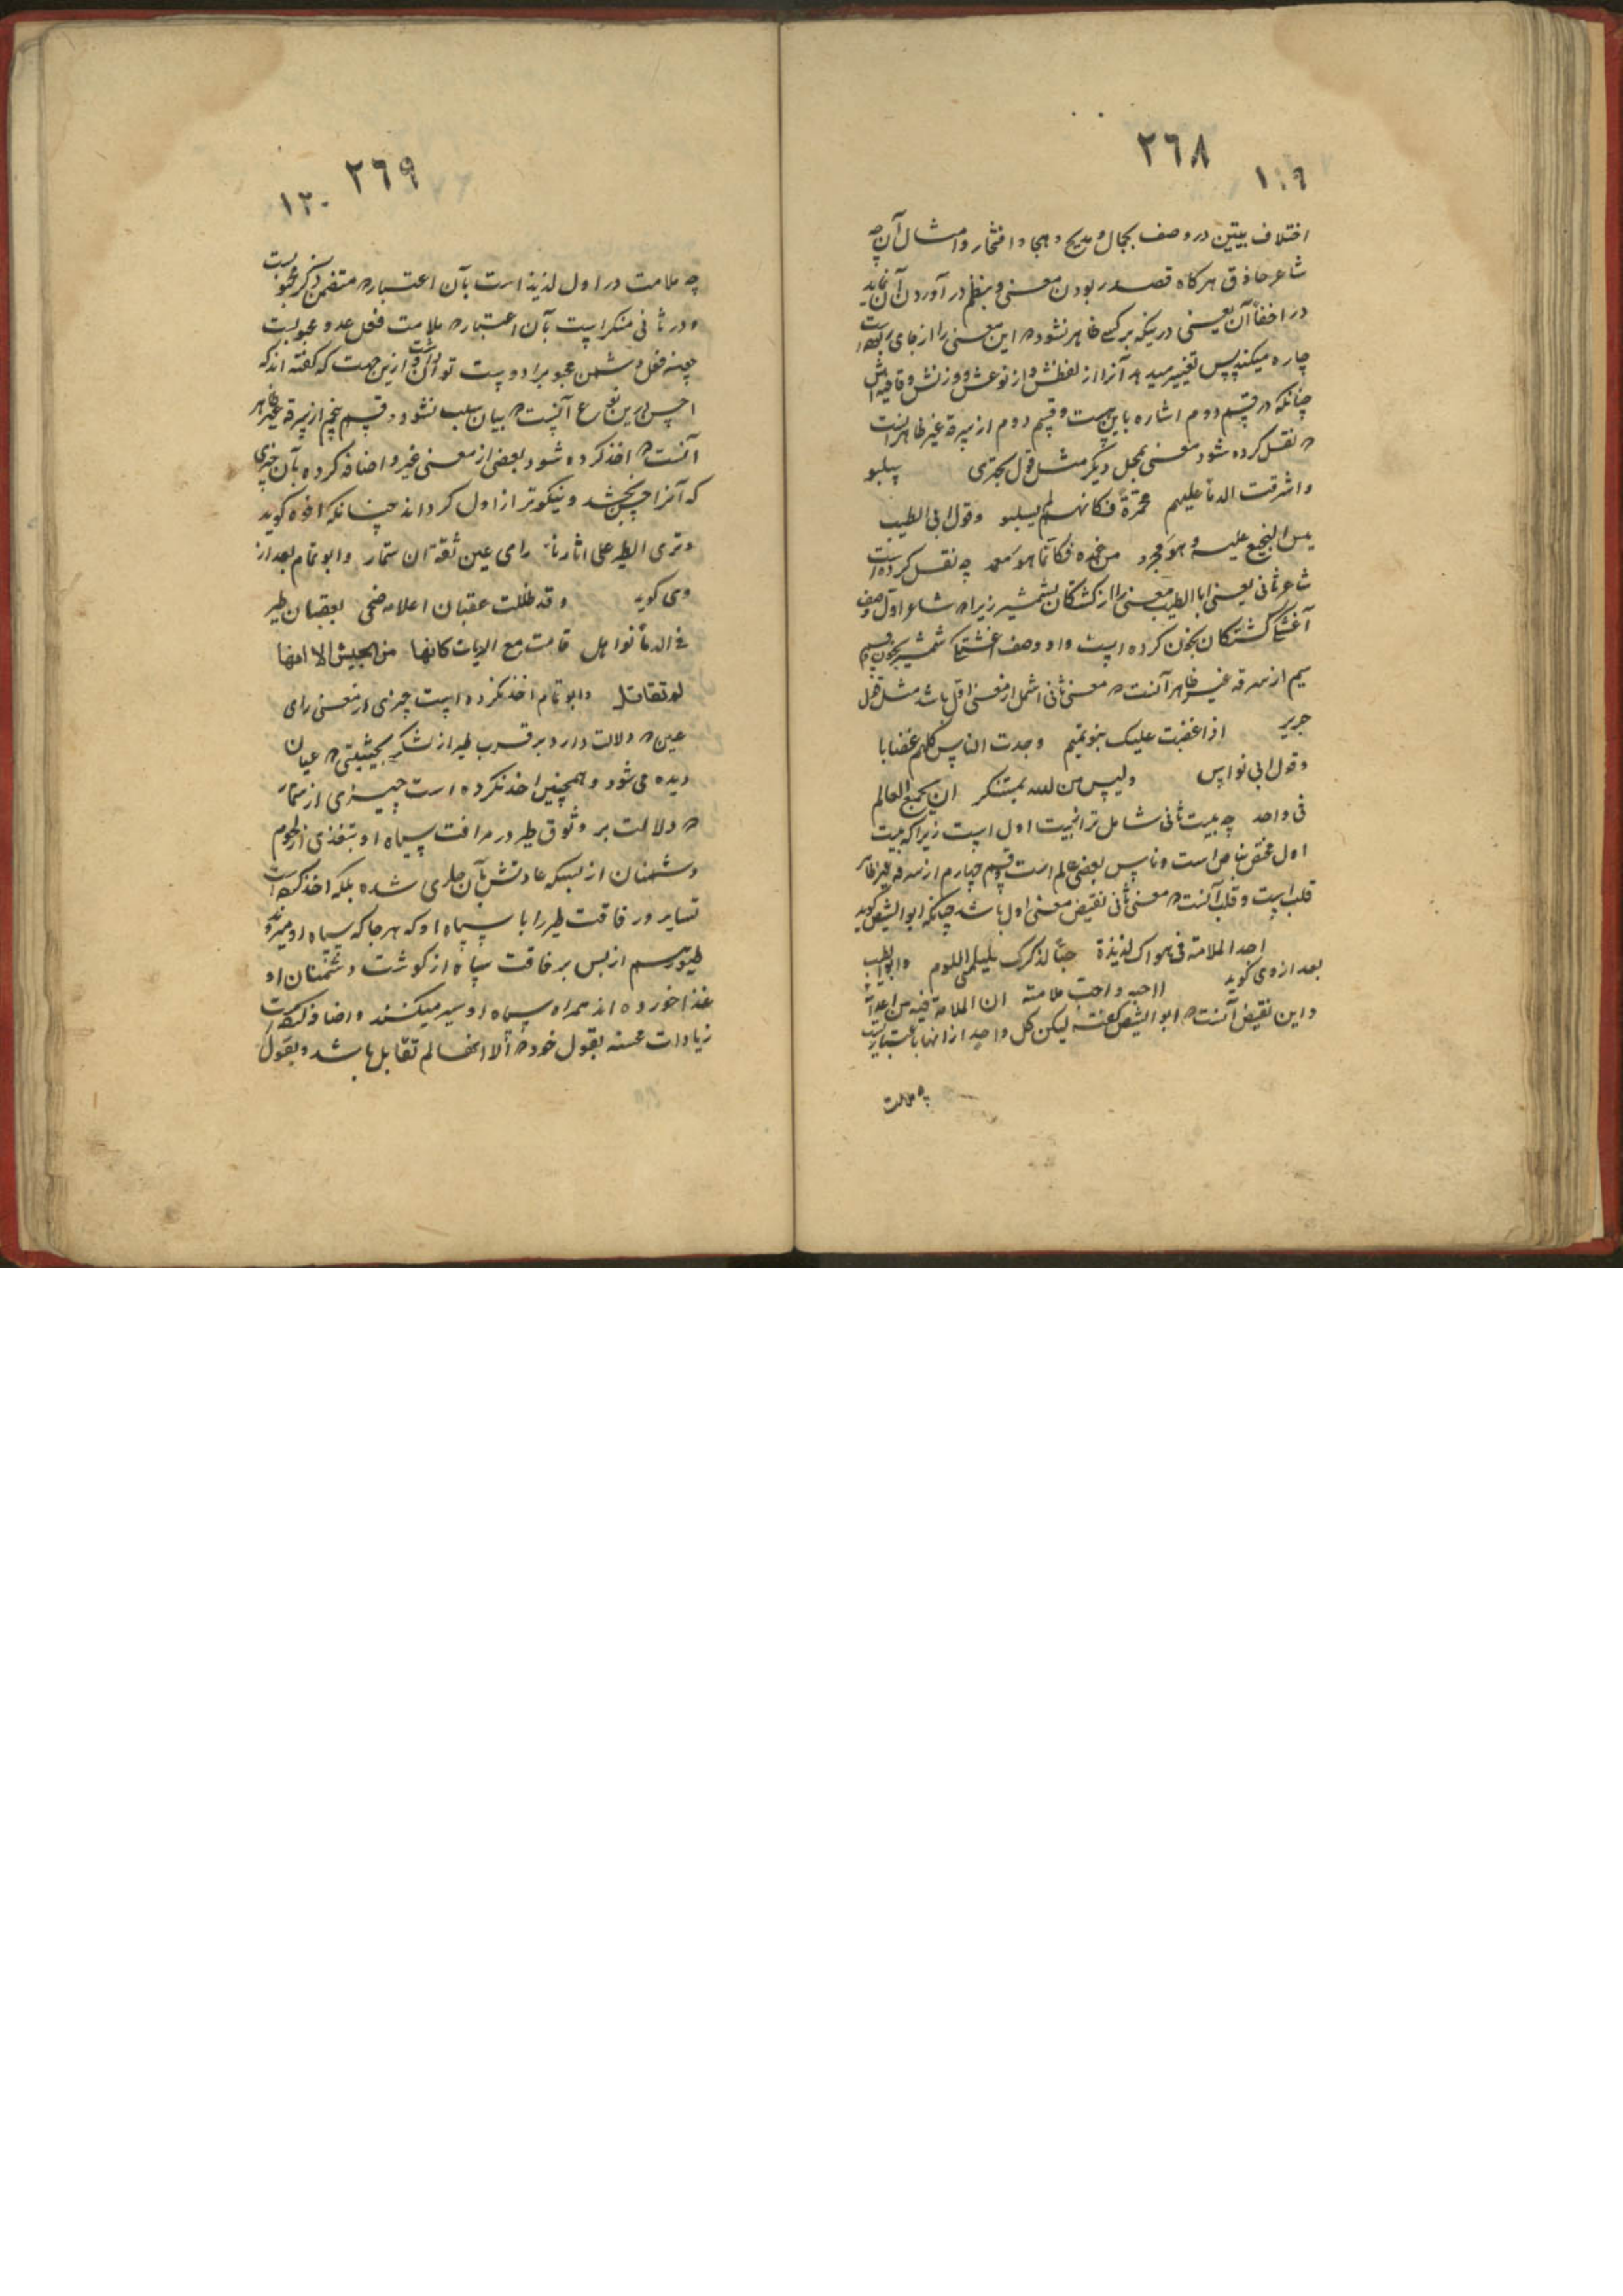 ٢٦٨
١١٩
اختلاف بیتین در وصف بجمال و مدیح و هجا و افتخار و امثال آن چه
شاعر حاذق هر کاه قصد ربودن معنی و بنظم در آوردن آن نماید
در اخفاء آن یعنی درینکه بر کسے ظاهر نشود که این معنی را از جای ربوده است
چاره میکند پس تغییر میدهد آنرا از لفظش و از نوعش و وزنش و قافیه اش
چنانکه در قسم دوم اشاره باین هست و قسم دوم از سرقه غیر ظاهر انست
که نقل کرده شود معنی بمحل دیکر مثل قول بحتری سلبو
واشرقت الدماء علیهم محمرة فکانهم لم یسلبو وقول ابی الطیب
یبس النجیع علیه وهو مجرد من غمده فکانما هو مغمد چه نقل کرده است
شاعر ثانی یعنی ابا الطیب معنی را از کشتکان بشمشیر زیرا که شاعر اول وصف
آغشتکی کشتکان بخون کرده است و او وصف اغشتکی شمشیر بخون و قسم
سیم از سرقه غیر ظاهر آنست که معنی ثانی اشمل از معنی اول باشد مثل قول
جریر اذا غضبت علیک بنو تمیم وجدت الناس کلهم غضابا
وقول ابی نواس ولیس من الله بمستنکر ان یجمع العالم
فی واحد چه بیت ثانی شامل تر از بیت اول است زیرا که بیت
اول مختص بناس است و ناس بعضی عالم است و قسم چهارم از سرقه غیر ظاهر
قلب است و قلب آنست که معنی ثانی نقیض معنی اول باشد چنانکه ابو الشیص کوید
اجد الملامة فی هواک لذیذة حبا لذکرک فلیلمنی اللوم وابو الطیب
بعد از وی کوید ااحبه واحب ملامة ان الملامة فیه من اعدائه
و این نقیض آنست که ابو الشیص کفته لیکن کل واحد از انها باعتباریست
چه ملامت
٢٦٩
١٢٠
چه ملامت در اول لذیذ است بآن اعتبار که متضمن ذکر محبوبست
و در ثانی منکر است بآن اعتبار که ملامت فعل عدو محبوبست
چونه فعل دشمن محبوبرا دوست توان داشت و ازین جهت که کفته اند که
احسن درین نوع آنست که بیان سبب نشود و قسم پنجم از سرقه غیر ظاهر
آنست که اخذ کرده شود بعضی از معنی غیر و اضافه کرده بآن چیزی
که آنرا حسن بخشد و نیکوتر از اول کرداند چنانکه افوه کوید
وتری الطیر علی اثارنا رای عین ثقة ان ستمار وابو تمام بعد از
وی کوید وقد ظللت عقبان اعلامه ضحی بعقبان طیر
فی الدماء نواهل قامت مع الرایات کانها من الجیش الا انها
لم تقاتل وابو تمام اخذ نکرده است چیزی از معنی رای
عین که دلالت دارد بر قرب طیر از لشکر بحیثیتی که عیان
دیده می شود و همچنین اخذ نکرده است چیزی از ستمار
که دلالت بر وثوق طیر در مرافقت سپاه او بتغذی از لحوم
دشمنان از بسکه عادتش بآن جاری شده بلکه اخذ کرده است
تسایر و رفاقت طیر را با سپاه او که هر جا که سپاه او میرود
طیور هم از بس بر فاقت سپاه از کوشت دشمنان او
غذا خورده اند همراه سپاه او سیر میکنند و اضافه کرده است
زیادات محسنه بقول خود که الا انها لم تقابل باشد و بقول